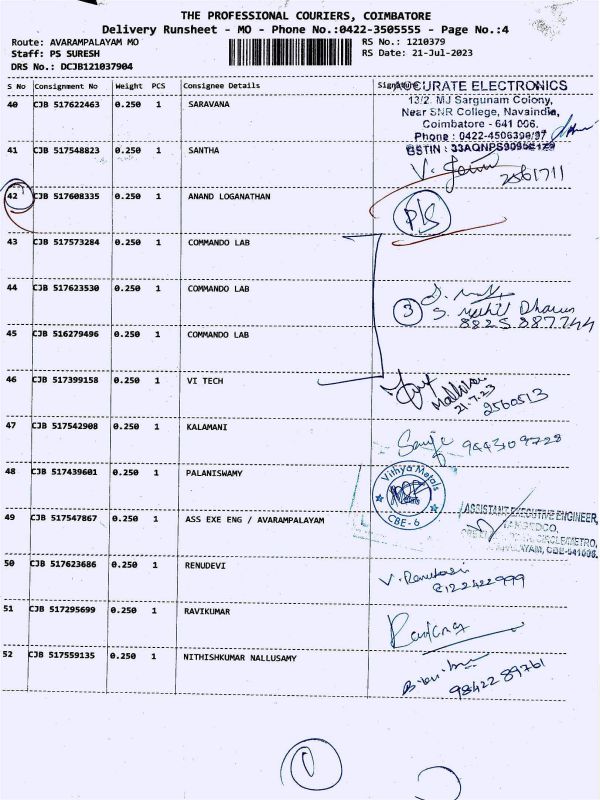 THE PROFESSIONAL COURIERS, COIMBATORE
Delivery Runsheet - MO - Phone No.:0422-3505555 - Page No.:4
Route: AVARAMPALAYAM MO RS No.: 1210379
Staff: PS SURESH RS Date: 21-Jul-2023
DRS No.: DCJB121037904
S No Consignment No Weight PCS Consignee Details Signature
ACCURATE ELECTRONICS
40 CJB 517622463 0.250 1 SARAVANA
13/2, MJ Sargunam Colony,
Near SNR College, Navaindia,
Coimbatore - 641 006.
Phone : 0422-4506390/97
GSTIN :
41 CJB 517548823 0.250 1 SANTHA
2561711
42 CJB 517608335 0.250 1 ANAND LOGANATHAN
P/S
43 CJB 517573284 0.250 1 COMMANDO LAB
44 CJB 517623530 0.250 1 COMMANDO LAB
3
8825887744
45 CJB 516279496 0.250 1 COMMANDO LAB
46 CJB 517399158 0.250 1 VI TECH
21.7.23
2560513
47 CJB 517542908 0.250 1 KALAMANI
9443109728
48 CJB 517439601 0.250 1 PALANISWAMY
Vithya Metals
CBE-6
49 CJB 517547867 0.250 1 ASS EXE ENG / AVARAMPALAYAM
ASSISTANT EXECUTIVE ENGINEER,
CIRCLE/METRO,
CBE-641006.
50 CJB 517623686 0.250 1 RENUDEVI
8122422999
51 CJB 517295699 0.250 1 RAVIKUMAR
52 CJB 517559135 0.250 1 NITHISHKUMAR NALLUSAMY
9842289761
1